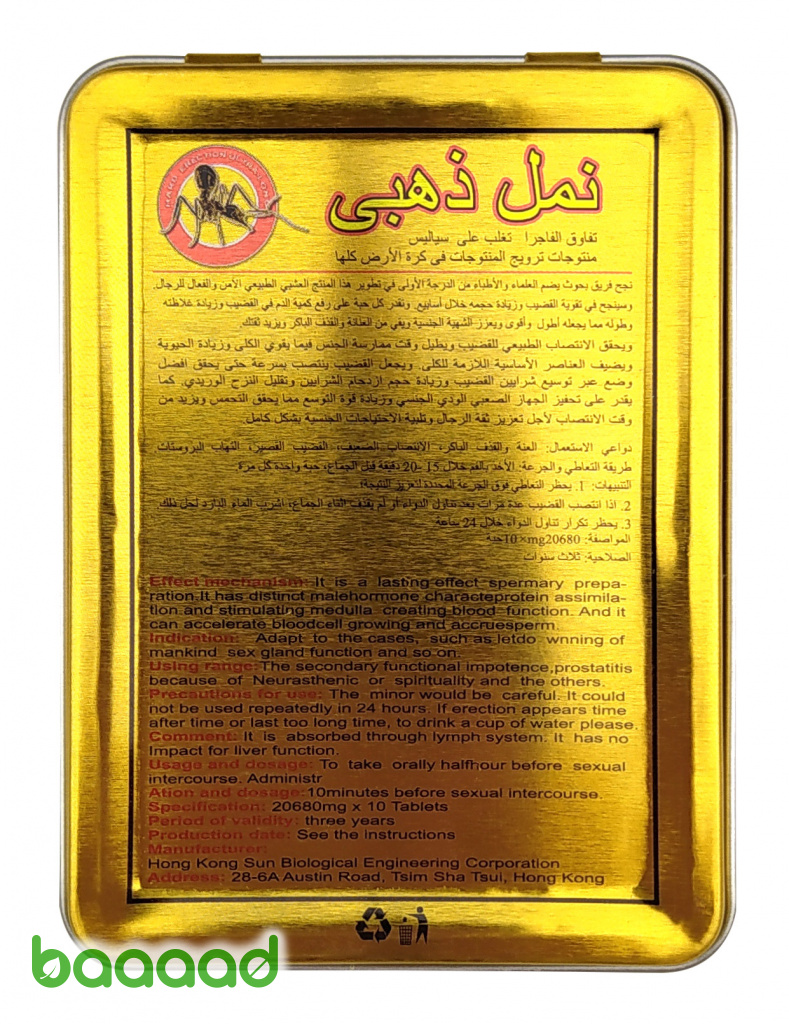 HARD ERECTION
نمل ذهبي
تفاوق الفاجرا تغلب على سياليس
منتوجات ترويج المنتوجات فى كرة الأرض كلها
نجح فريق بحوث يضم العلماء والأطباء من الدرجة الأولى في تطوير هذا المنتج العشبي الطبيعي الأمن والفعال للرجال.
وسينجح في تقوية القضيب وزيادة حجمه خلال أسابيع. وتقدر كل حبة على رفع كمية الدم في القضيب وزيادة غلاظته
وطوله مما يجعله أطول وأقوى ويعزز الشهية الجنسية ويفي من العنانة والقذف الباكر ويزيد ثقتك.
ويحقق الانتصاب الطبيعي للقضيب ويطيل وقت ممارسة الجنس فيما يقوي الكلى وزيادة الحيوية
ويضيف العناصر الأساسية اللازمة للكلى. ويجعل القضيب ينتصب بسرعة حتى يحقق افضل
وضع عبر توسيع شرايين القضيب وزيادة حجم ازدحام الشرايين وتقليل النزح الوريدي. كما
يقدر على تحفيز الجهاز الصعبي الودي الجنسي وزيادة قوة التوسع مما يحقق التحمس ويزيد من
وقت الانتصاب لأجل تعزيز ثقة الرجال وتلبية الاحتياجات الجنسية بشكل كامل.
دواعي الاستعمال: العنة والقذف الباكر، الانتصاب الضعيف، القضيب القصير، التهاب البروستات
طريقة التعاطي والجرعة: الأخذ بالفم خلال 15 -20 دقيقة قبل الجماع، حبة واحدة كل مرة
التنبيهات: 1. يحظر التعاطي فوق الجرعة المحددة لتعزيز النتيجة؛
2. اذا انتصب القضيب عدة مرات بعد تناول الدواء أو لم يقذف اثناء الجماع، اشرب الماء البارد لحل ذلك.
3. يحظر تكرار تناول الدواء خلال 24 ساعة
المواصفة: 20680mg×10حبة
الصلاحية: ثلاث سنوات
Effect mechanism: It is a lasting effect spermary prepa-
ration.It has distinct malehormone characteprotein assimila-
tion and stimulating medulla creating blood function. And it
can accelerate bloodcell growing and accruesperm.
Indication: Adapt to the cases, such as letdo wnning of
mankind sex gland function and so on.
Using range: The secondary functional impotence,prostatitis
because of Neurasthenic or spirituality and the others.
Precautions for use: The minor would be careful. It could
not be used repeatedly in 24 hours. If erection appears time
after time or last too long time, to drink a cup of water please.
Comment: It is absorbed through lymph system. It has no
Impact for liver function.
Usage and dosage: To take orally halfhour before sexual
intercourse. Administr
Ation and dosage: 10minutes before sexual intercourse.
Specification: 20680mg x 10 Tablets
Period of validity: three years
Production date: See the instructions
Manufacturer:
Hong Kong Sun Biological Engineering Corporation
Address: 28-6A Austin Road, Tsim Sha Tsui, Hong Kong
baaaad